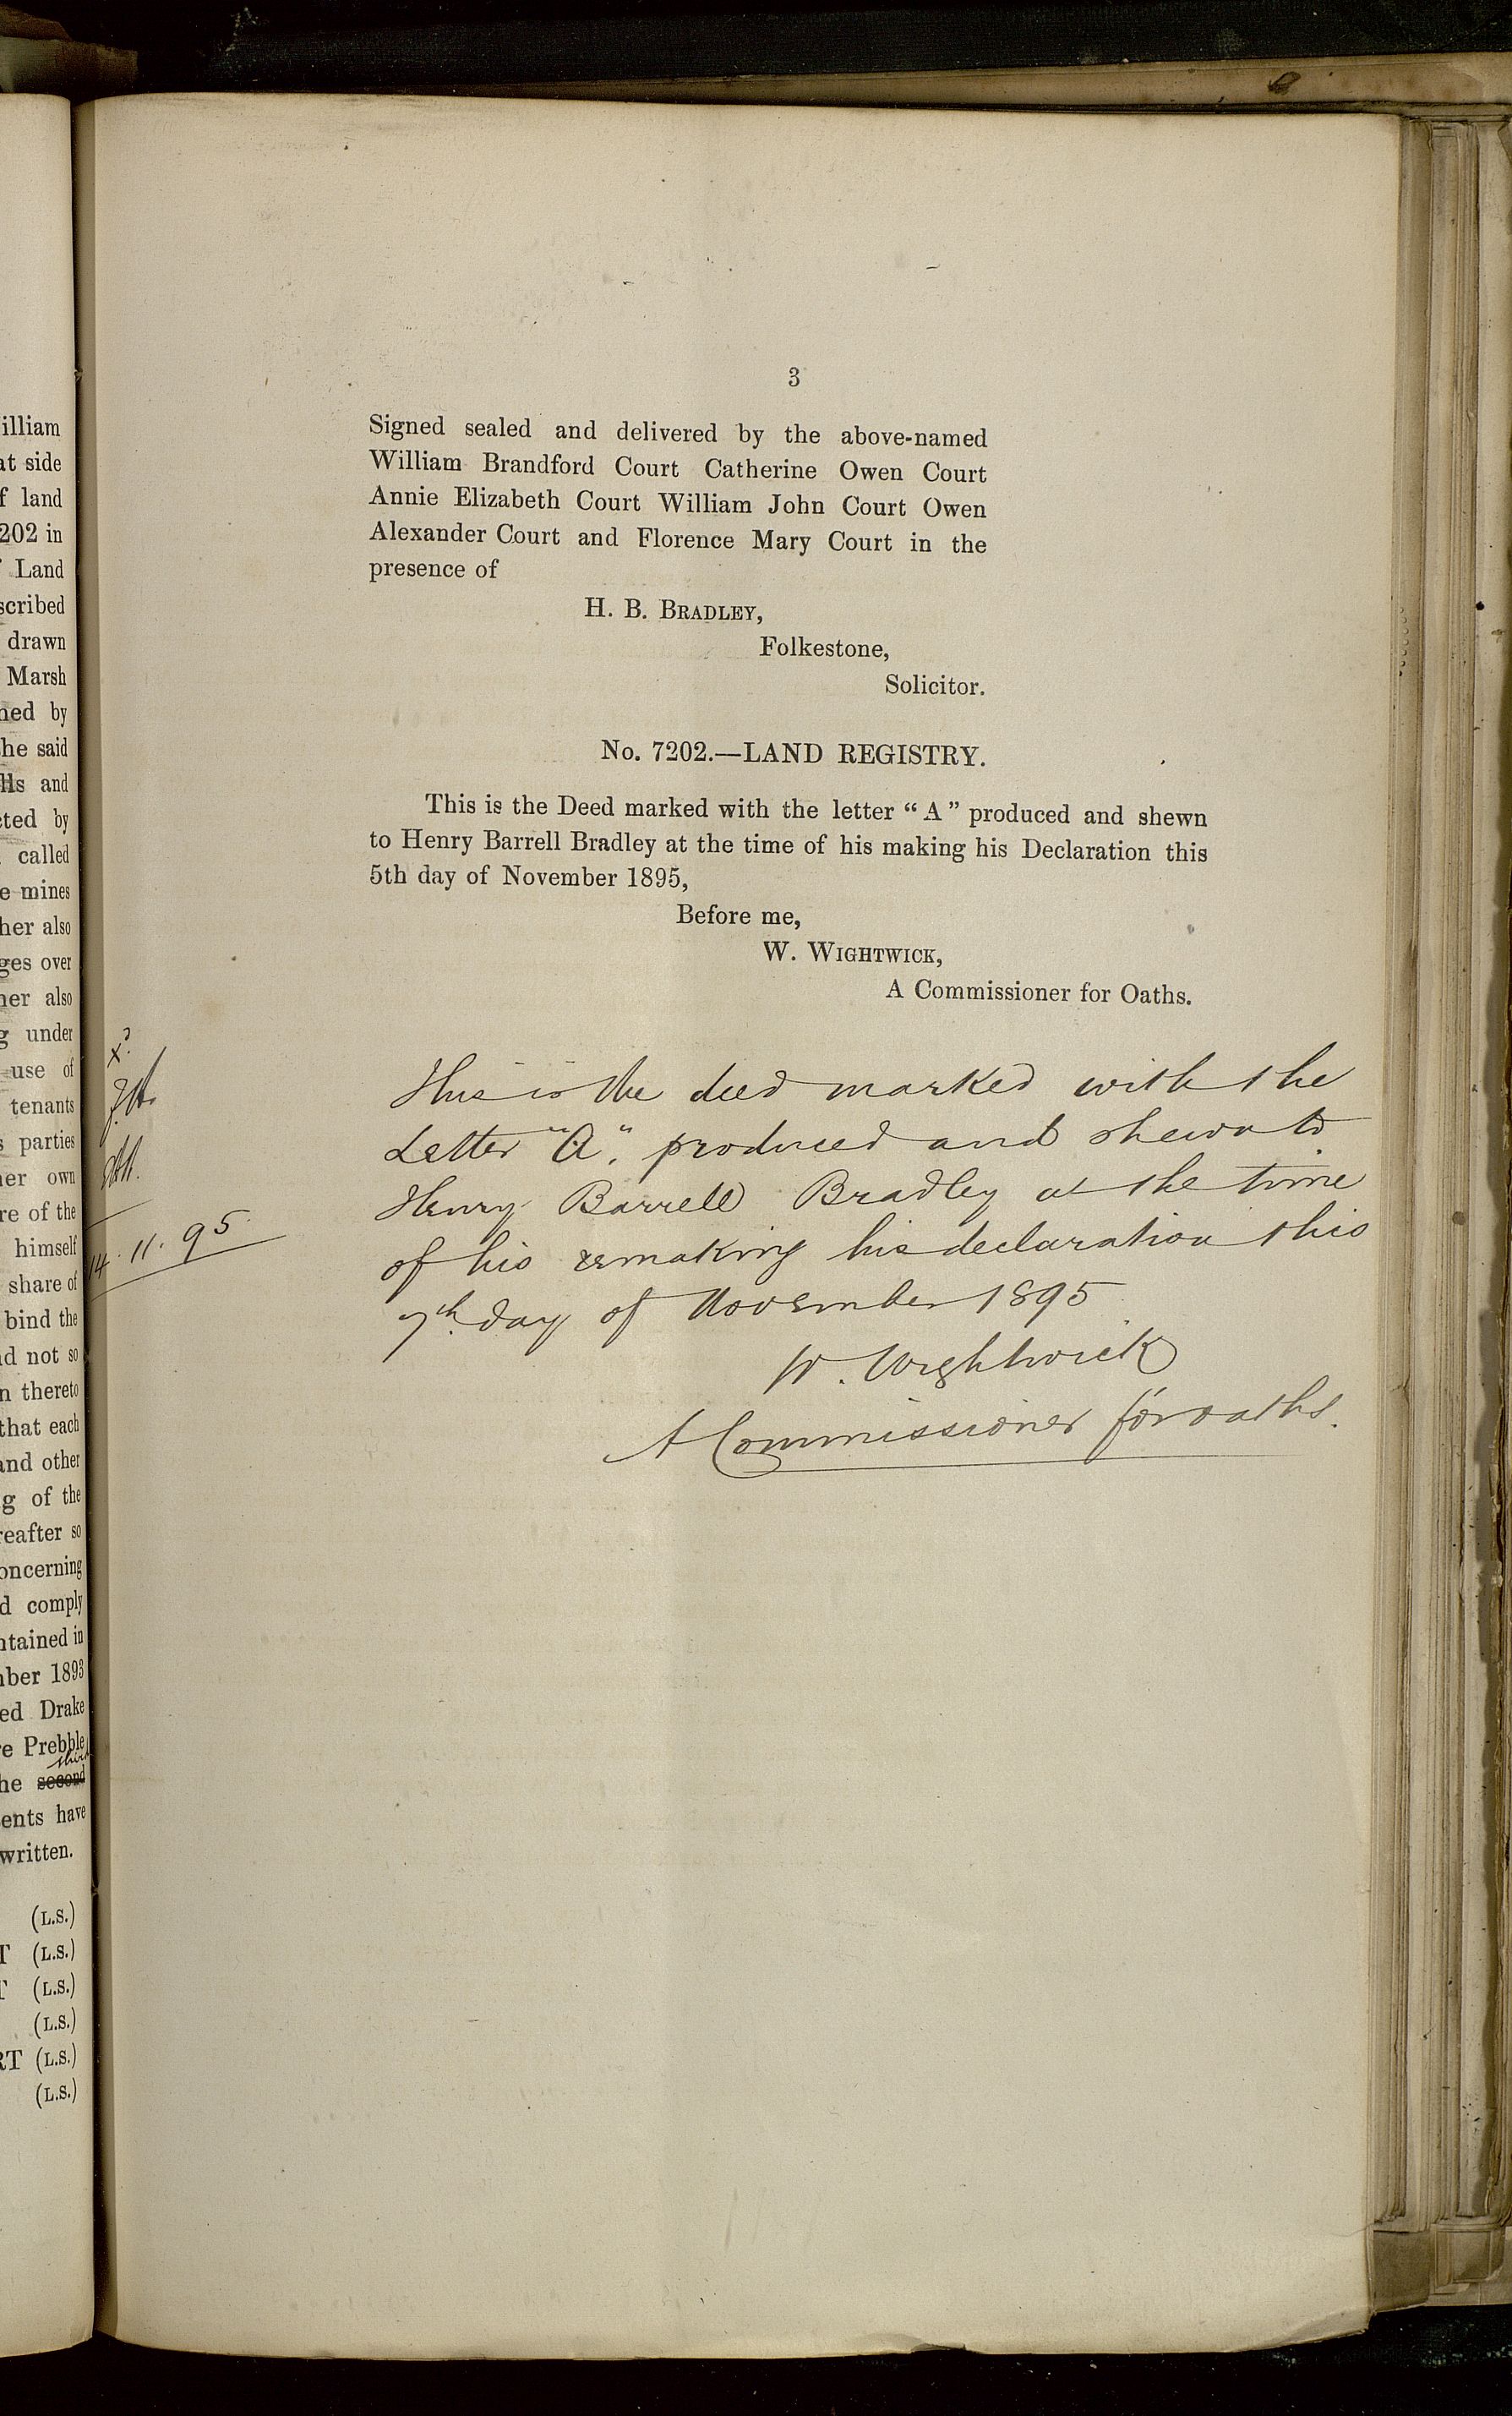 illiam
at side
f land
202 in
Land
scribed
drawn
Marsh
ned by
he said
lls and
cted by
called
e mines
her also
ges over
her also
g under
use of
tenants
s parties
her own
re of the
himself
share of
bind the
d not so
n thereto
that each
and other
g of the
reafter so
oncerning
d comply
ntained in
ber 1893
ed Drake
e Prebble
third
he second
ents have
written.
(L.S.)
T (L.S.)
T (L.S.)
(L.S.)
RT (L.S.)
(L.S.)
3
Signed sealed and delivered by the above-named
William Brandford Court Catherine Owen Court
Annie Elizabeth Court William John Court Owen
Alexander Court and Florence Mary Court in the
presence of
H. B. BRADLEY,
Folkestone,
Solicitor.
No. 7202.—LAND REGISTRY.
This is the Deed marked with the letter “A” produced and shewn
to Henry Barrell Bradley at the time of his making his Declaration this
5th day of November 1895,
Before me,
W. WIGHTWICK,
A Commissioner for Oaths.
xd.
14. 11. 95
This is the deed marked with the
Letter "A". produced and shewn to
Henry Barrell Bradley at the time
of his remaking his declaration this
7th. day of November 1895
W. Wightwick
A Commissioner for oaths.